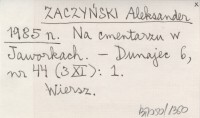 x
ZACZYŃSKI Aleksander
1985 r. Na cmentarzu w
Jaworkach. – Dunajec 6,
nr 44 (3 XI): 1.
Wiersz.